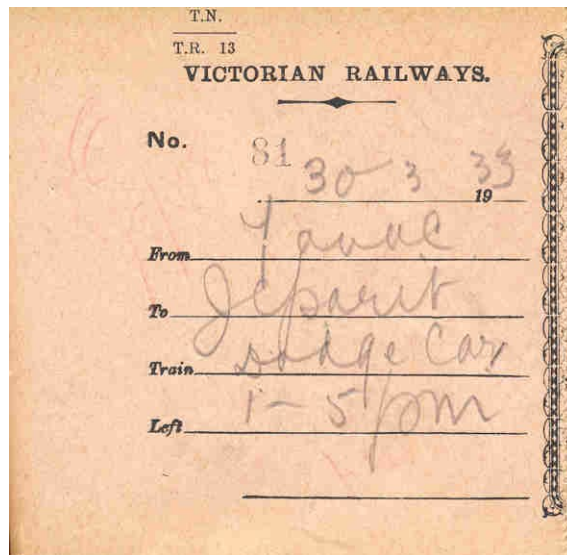 T.N.
T.R. 13
VICTORIAN RAILWAYS.
No. 81
30 3 1933
From Yanac
To Jeparit
Train Dodge Car
Left 1-5 pm